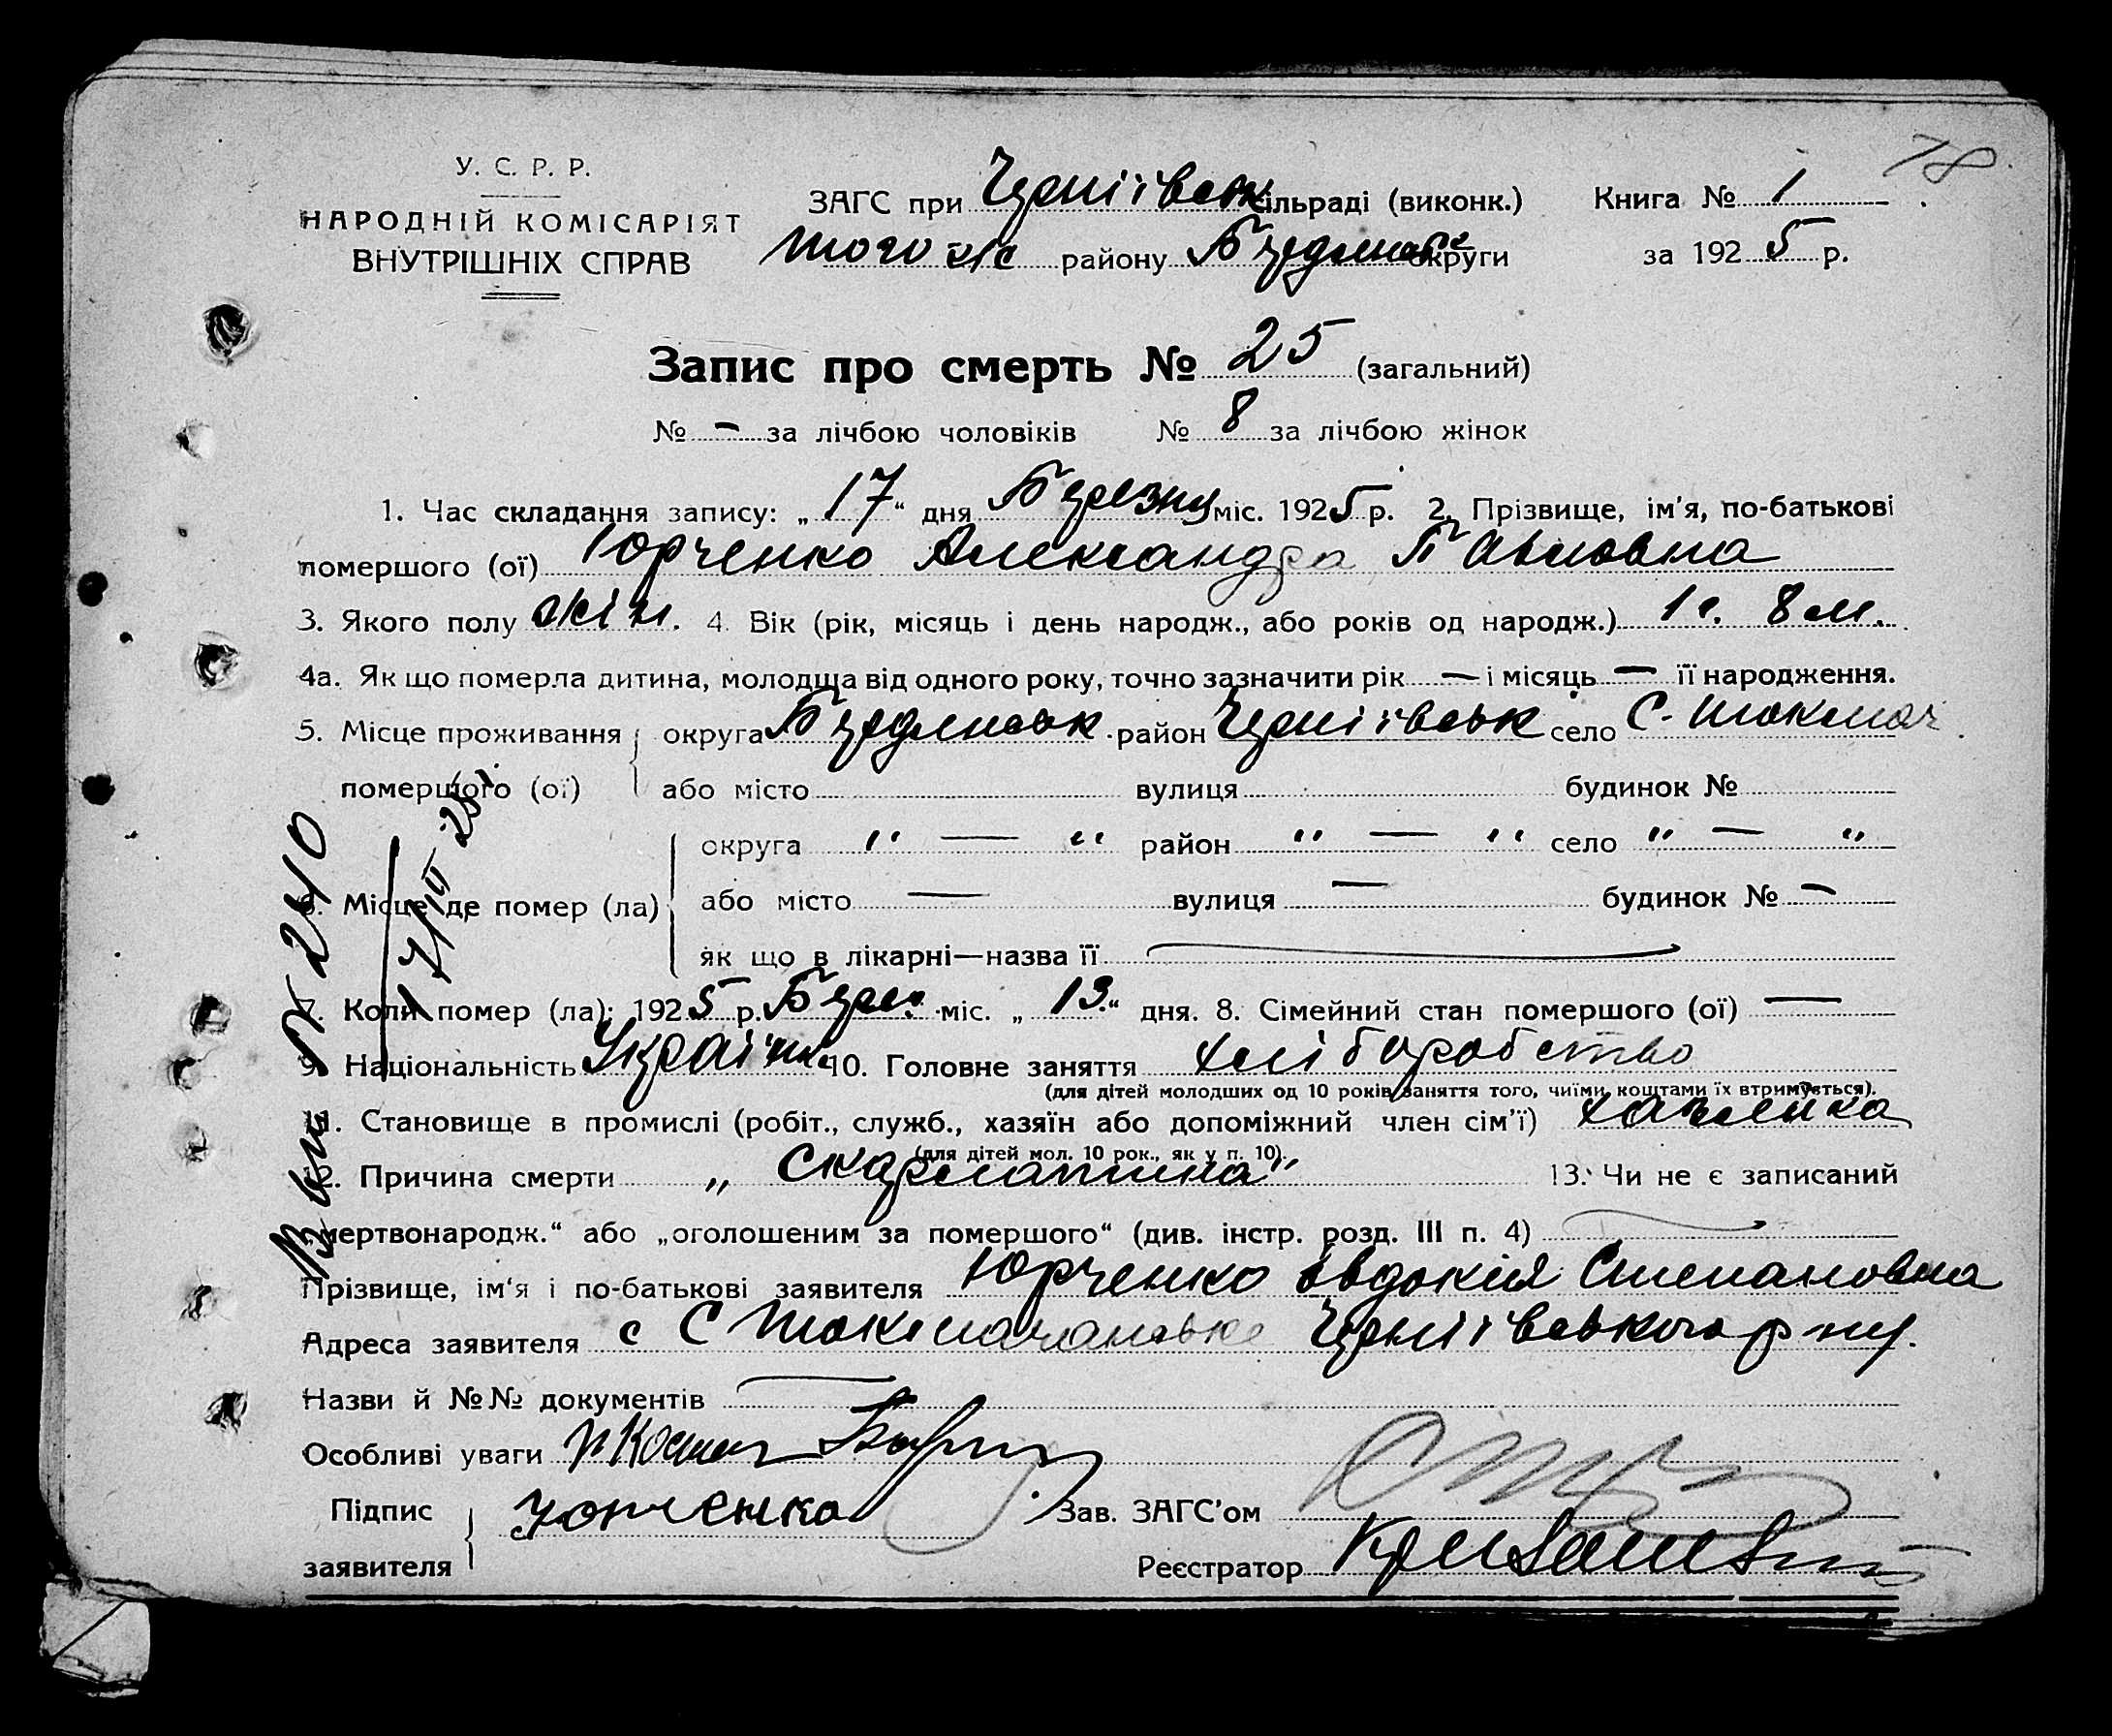 78
У. С. Р. Р.
НАРОДНІЙ КОМІСАРІЯТ
ВНУТРІШНІХ СПРАВ
ЗАГС при Черніївськ сільраді (виконк.)
того ж району Бердянськ округи
Книга № 1
за 1925 р.
Запис про смерть № 25 (загальний)
№ — за лічбою чоловіків № 8 за лічбою жінок
1. Час складання запису: „17“ дня Березня міс. 1925 р. 2. Прізвище, ім'я, по-батькові
помершого (ої) Юрченко Александра Павловна
3. Якого полу жін. 4. Вік (рік, місяць і день народж., або років од народж.) 1 г. 8 м.
4а. Як що померла дитина, молодща від одного року, точно зазначити рік — і місяць — її народження.
5. Місце проживання округа Бердянськ район Черніївськ село С. Токмач
помершого (ої) або місто вулиця будинок №
округа " — " район " — " село " — "
6. Місце де помер (ла) або місто — вулиця — будинок № —
як що в лікарні—назва її
7. Коли помер (ла): 1925 р. Берез. міс. „13“ дня. 8. Сімейний стан помершого (ої) —
9. Національність Україн. 10. Головне заняття хліборобство
(для дітей молодших од 10 років заняття того, чиїми коштами їх втримується).
11. Становище в промислі (робіт., служб., хазяїн або допоміжний член сім'ї) хазяйка
(для дітей мол. 10 рок., як у п. 10).
12. Причина смерти „Скарлатина“ 13. Чи не є записаний
„мертвонародж.“ або „оголошеним за помершого“ (див. інстр. розд. III п. 4)
Прізвище, ім'я і по-батькові заявителя Юрченко Євдокія Степановна
Адреса заявителя с С Токмачанське Черніївського р-ну.
Назви й №№ документів
Особливі уваги
Підпис заявителя Юрченко
Зав. ЗАГС'ом
Реєстратор
№ 240
17/III 25